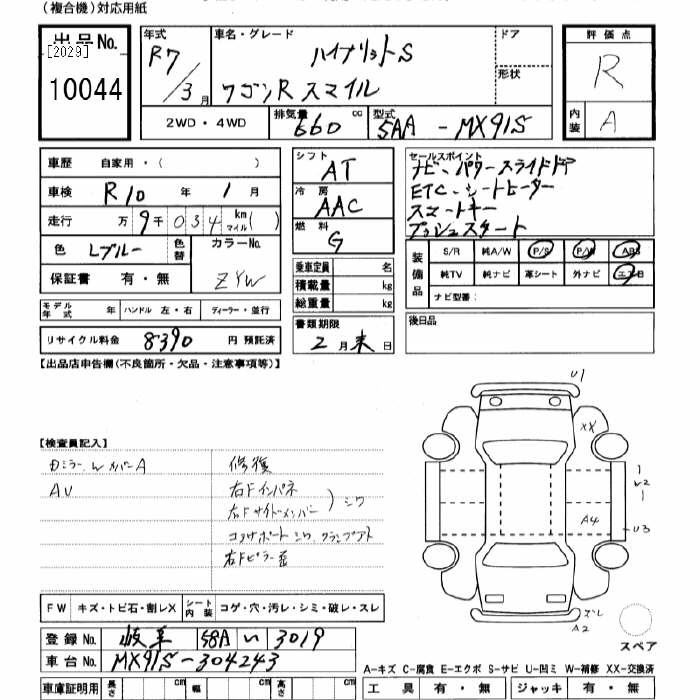 (複合機)対応用紙
出品No.
[2029]
10044
年式 R7/3月
車名・グレード ハイブリットS
ワゴンR スマイル
ドア
形状
2WD・4WD
排気量 660 cc
型式 5AA - MX91S
評価点 R
内装 A
車歴 自家用・( )
車検 R10年 1月
走行 万9千034 km マイル( )
色 Lブルー 色替
カラーNo. ZYW
保証書 有・無
モデル年式 年 ハンドル 左・右 ディーラー・並行
リサイクル料金 8390 円 預託済
シフト AT
冷房 AAC
燃料 G
乗車定員 名
積載量 kg
総重量 kg
書類期限
2月末日
セールスポイント
ナビ、パワースライドドア
ETC、シートヒーター
スマートキー
プッシュスタート
装備品
S/R 純A/W P/S P/W ABS
純TV 純ナビ 革シート 外ナビ エアB
ナビ型番:
後日品
【出品店申告欄(不良箇所・欠品・注意事項等)】
【検査員記入】
修復
AU
右Fインパネ
右Fサイドメンバー )シワ
コアサポート シワ クランプアト
右Fピラー
U1
XX
U2
A4
U3
A2
スペア
FW キズ・トビ石・割レX シート内装 コゲ・穴・汚レ・シミ・破レ・スレ
登録No. 岐阜 58A い 3019
車台No. MX91S-304243
A-キズ C-腐食 E-エクボ S-サビ U-凹ミ W-補修 XX-交換済
車庫証明用 長さ cm 幅 cm 高さ cm
工具 有・無 ジャッキ 有・無